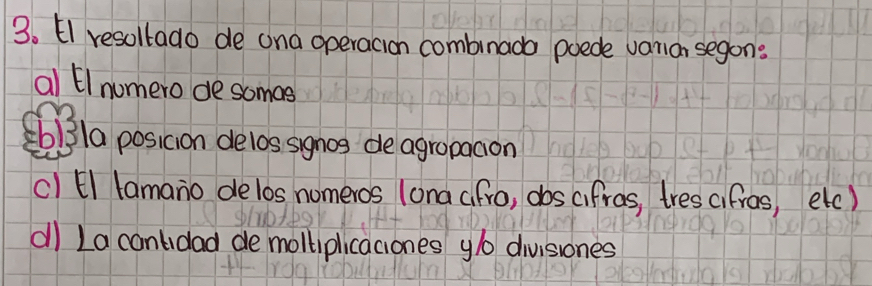 3. El resultado de una operacion combinada puede variar segun:
a) El numero de sumas
b) la posicion de los signos de agrupacion
c) El tamaño de los numeros (una cifra, dos cifras, tres cifras, etc)
d) La cantidad de multiplicaciones y/o divisiones